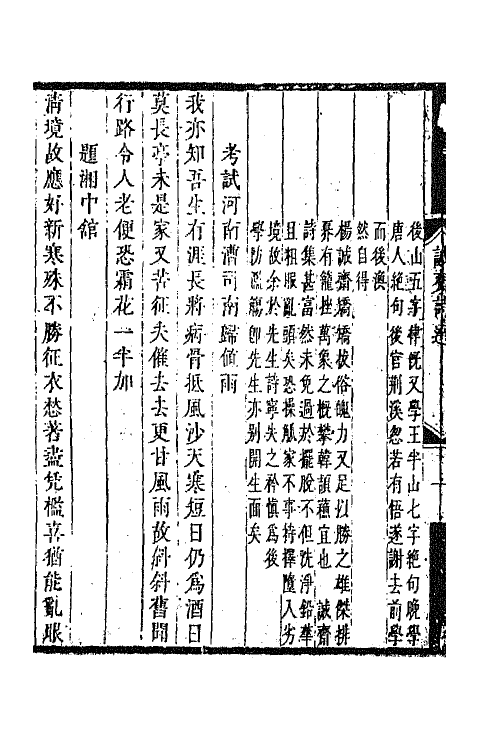 誠齋詩選
後山五字律旣又學王半山七字絕句晚學
唐人絕句後官荆溪忽若有悟遂謝去前學
而後渙
然自得
楊誠齋矯矯拔俗魄力又足以勝之雄傑排
奡有籠挫萬象之概攀韓頡蘓宜也　誠齋
詩集甚富然未免過於擺脫不但洗淨鉛華
且粗服亂頭矣恐操觚家不事持擇墮入劣
境故余於先生詩寧失之矜慎爲後
學防濫觴卽先生亦别開生面矣
考試河南漕司南歸値雨
我亦知吾生有涯長將病骨抵風沙天寒短日仍爲酒日
莫長亭未是家又苦征夫催去去更甘風雨故斜斜舊聞
行路令人老便恐霜花一半加
題湘中館
淸境故應好新寒殊不勝征衣愁著盡凭檻喜猶能亂眼